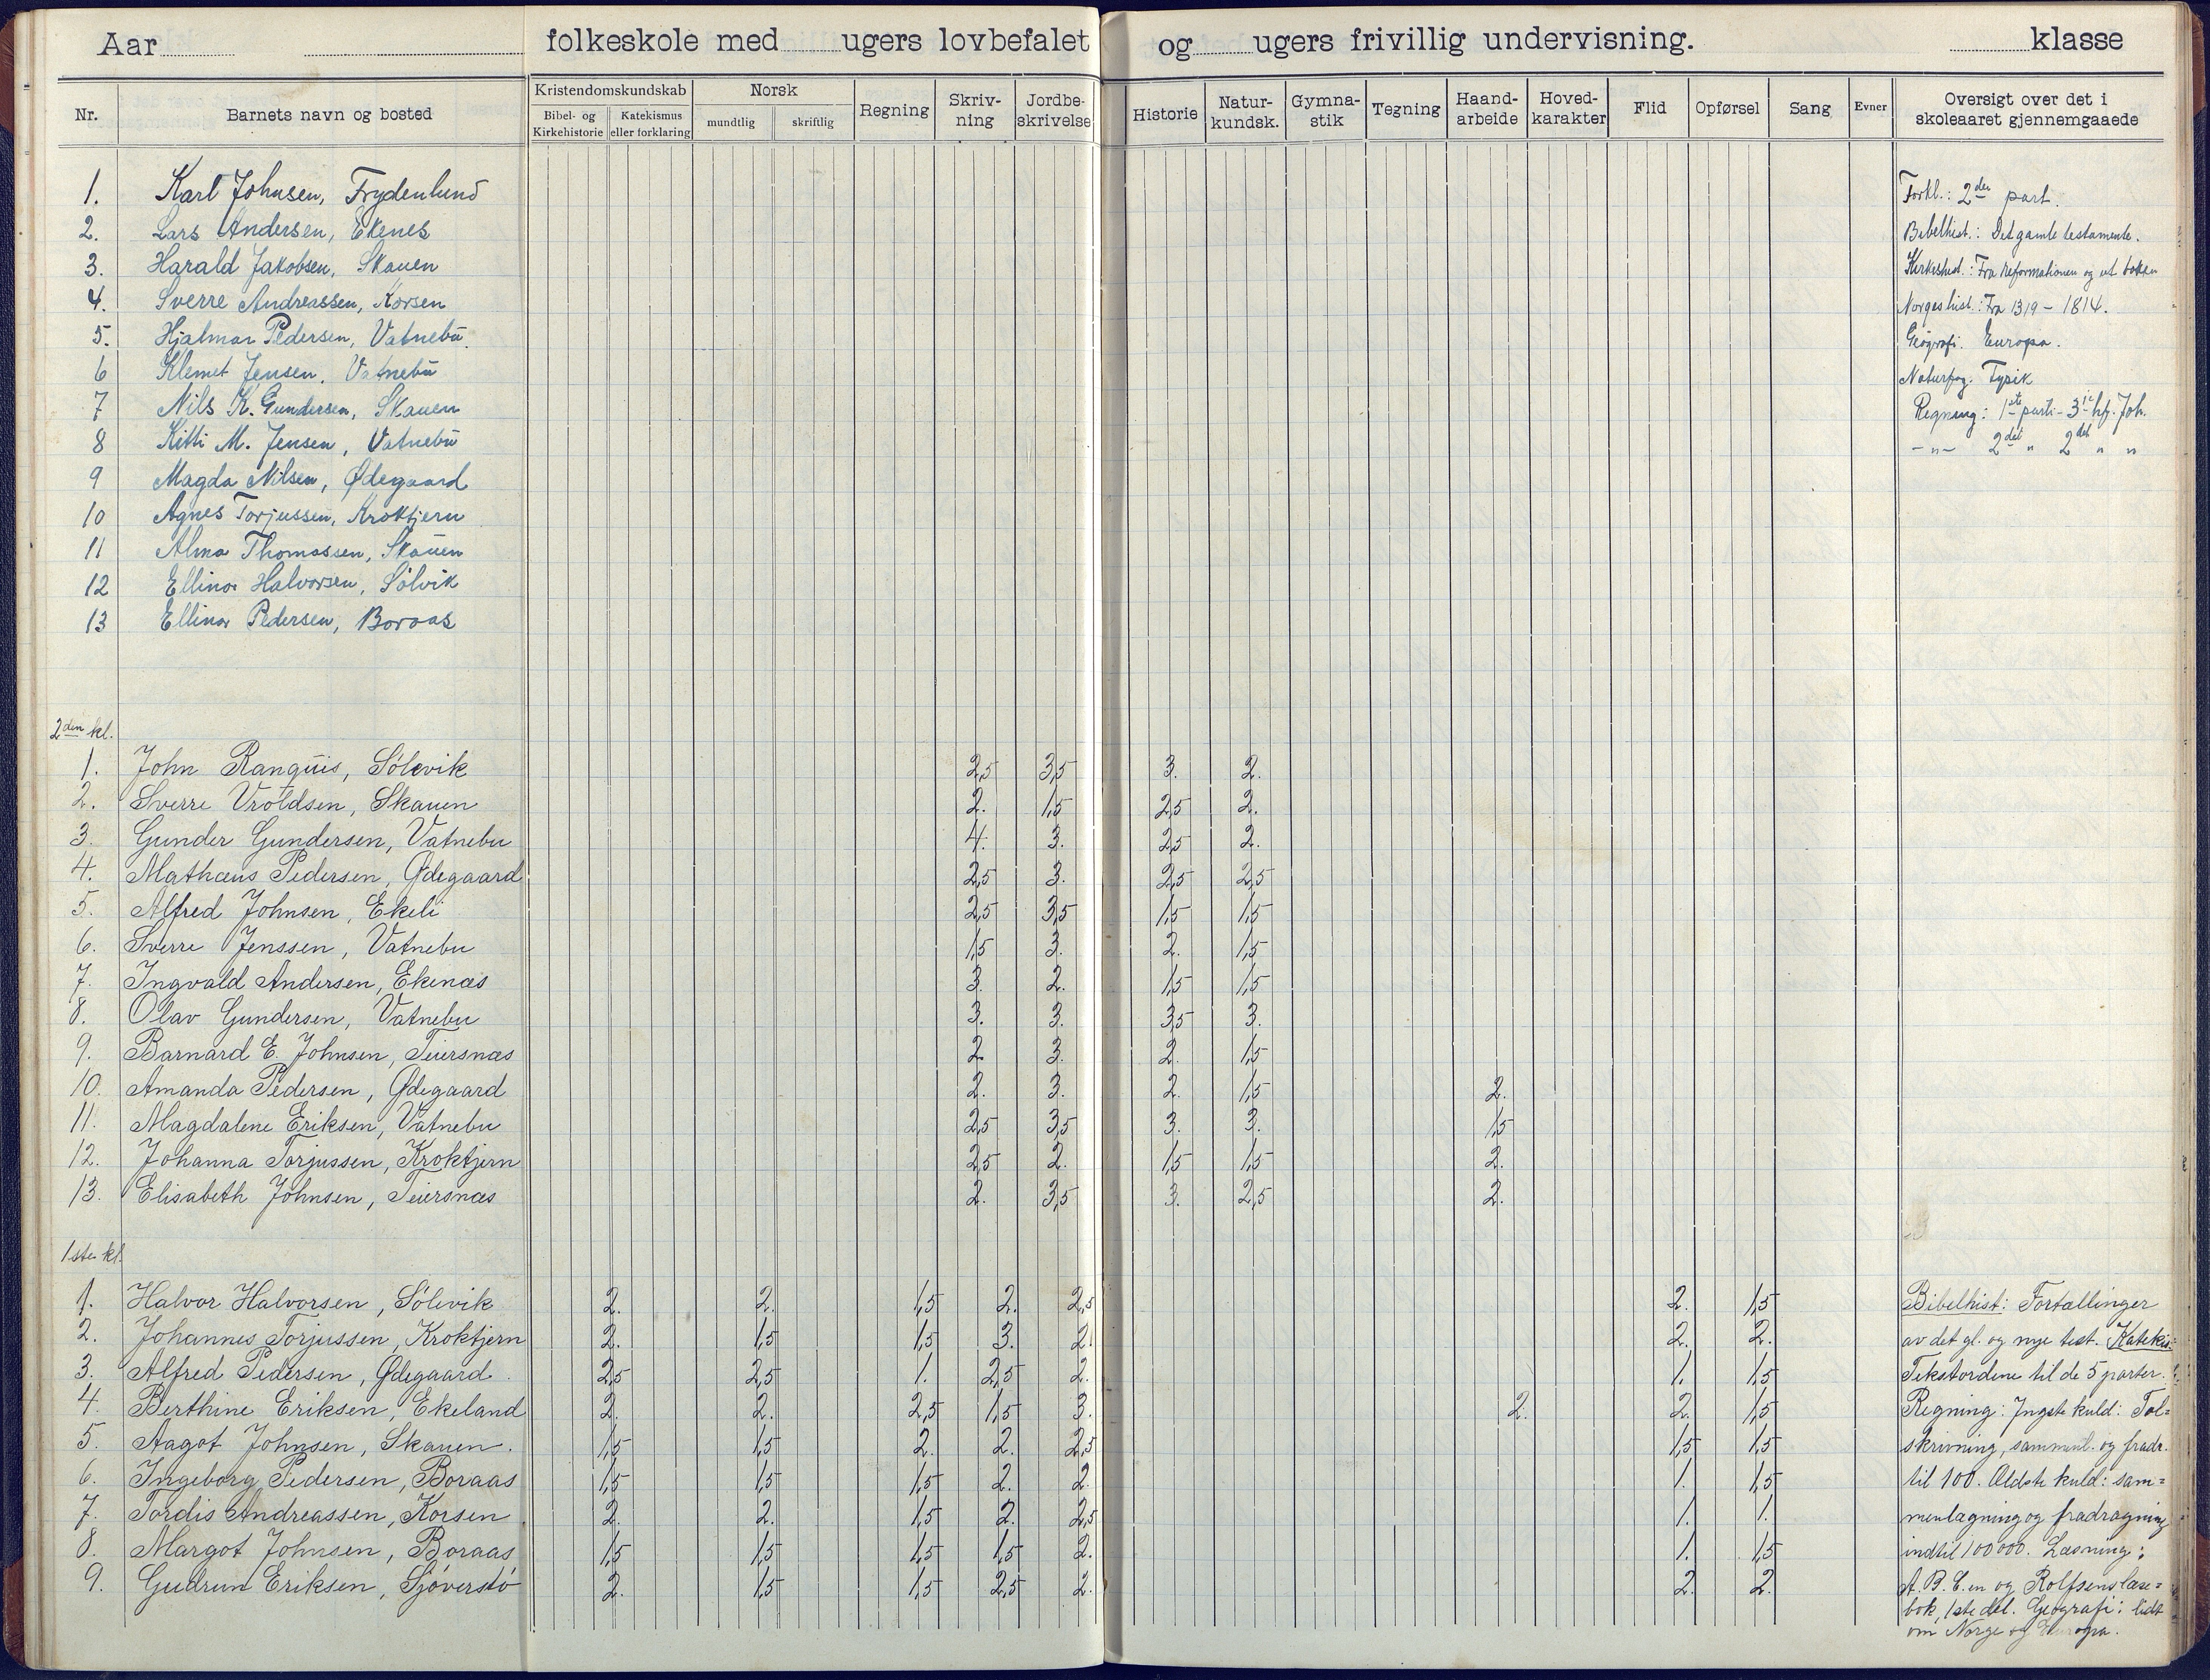 Aar folkeskole med ugers lovbefalet og ugers frivillig undervisning. klasse
Nr. Barnets navn og bosted Kristendomskundskab Bibel- og Kirkehistorie Katekismus eller forklaring Norsk mundtlig skriftlig Regning Skriv-ning Jordbe-skrivelse Historie Natur-kundsk. Gymna-stik Tegning Haand-arbeide Hoved-karakter Flid Opførsel Sang Evner Oversigt over det i skoleaaret gjennemgaaede
1. Karl Johnsen, Frydenlund
2. Lars Andersen, Ekenes
3. Harald Jakobsen, Skauen
4. Sverre Andreassen, Korsen
5. Hjalmar Pedersen, Vatnebu
6 Klemet Jensen, Vatnebu
7 Nils K. Gundersen, Skauen
8 Kitti M. Jensen, Vatnebu
9 Magda Nilsen, Ødegaard
10 Agnes Torjussen, Kroktjern
11 Alma Thomassen, Skauen
12 Ellinor Halvorsen, Sølvik
13 Ellinor Pedersen, Boraas
Forkl.: 2den part.
Bibelhist.: Det gamle testamente.
Kirkehist.: Fra reformationen og ut boken
Norgeshist.: Fra 1319 - 1814.
Geografi. Europa.
Naturfag: Fysik
Regning: 1ste parti - 3je hf. Joh.
-"- 2det " 2det " "
2den kl.
1. John Ranquis, Sølevik 2,5 3,5 3. 2.
2. Sverre Vroldsen, Skauen 2. 1,5 2,5 2.
3. Gunder Gundersen, Vatnebu 4. 3. 2,5 2.
4. Mathæus Pedersen, Ødegaard 2,5 3. 2,5 2,5
5. Alfred Johnsen, Ekeli 2,5 3,5 1,5 1,5
6. Sverre Jenssen, Vatnebu 1,5 3. 2. 1,5
7. Ingvald Andersen, Ekenæs 3. 2. 1,5 1,5
8. Olav Gundersen, Vatnebu 3. 3. 3,5 3.
9. Barnard E. Johnsen, Teiersnæs 2. 3. 2. 1,5
10. Amanda Pedersen, Ødegaard 2. 3. 2. 1,5 2.
11. Magdalene Eriksen, Vatnebu 2,5 3,5 3. 3. 1,5
12. Johanna Torjussen, Kroktjern 2,5 2. 1,5 1,5 2.
13. Elisabeth Johnsen, Teiersnæs 2. 3,5 3. 2,5 2.
1ste kl.
1. Halvor Halvorsen, Sølevik 2. 2. 1,5 2. 2,5 2. 1,5
2. Johannes Torjussen, Kroktjern 2. 1,5 1,5 3. 2. 2. 2.
3. Alfred Pedersen, Ødegaard. 2,5 2,5 1. 2,5 2. 1. 1,5
4. Berthine Eriksen, Ekeland 2. 2. 2,5 1,5 3. 2. 2. 1,5
5. Aagot Johnsen, Skauen. 1,5 1,5 2. 2. 2,5 1,5 1,5
6. Ingeborg Pedersen, Boraas 1,5 1,5 1,5 2. 2. 1. 1,5
7. Tordis Andreassen, Korsen 2. 2. 1,5 2. 2,5 1. 1.
8. Margot Johnsen, Boraas 1,5 1,5 1,5 1,5 2. 1. 1,5
9. Gudrun Eriksen, Sjøverstø 2. 1,5 1,5 2,5 2. 2. 2.
Bibelhist: Fortællinger
av det gl. og nye test. Katekis:
Tekstordene til de 5 parter.
Regning: Yngste kuld: Tal=
skrivning, samment. og fradr.
til 100. Ældste kuld: sam=
menlægning og fradragning
indtil 100000. Læsning:
A. B. C. en og Rolfsens læse=
bok, 1ste del. Geografi: lidt
om Norge og Europa.